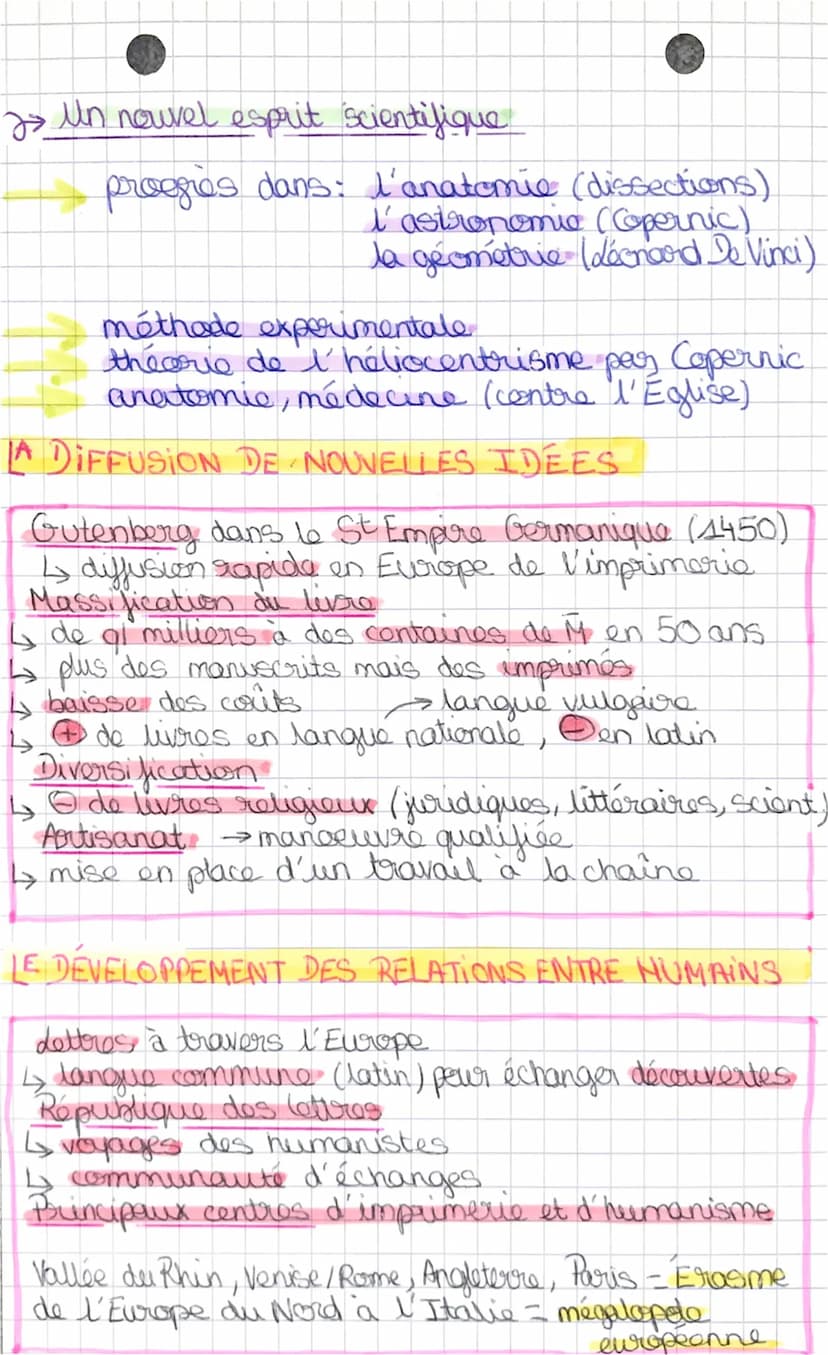 ↝ Un nouvel esprit scientifique
→ progrès dans: l'anatomie (dissections)
l'astronomie (Copernic)
la géométrie (Léonard De Vinci)
→ méthode experimentale
→ théorie de l'héliocentrisme par Copernic
→ anatomie, médecine (contre l'Église)
LA DIFFUSION DE NOUVELLES IDÉES
Gutenberg dans le St Empire Germanique (1450)
↳ diffusion rapide en Europe de l'imprimerie
Massification du livre
↳ de ql milliers à des centaines de M̄ en 50 ans
↳ plus des manuscrits mais des imprimés
↳ baisse des coûts → langue vulgaire
↳ ⊕ de livres en langue nationale, ⊖ en latin
Diversification
↳ ⊖ de livres religieux (juridiques, littéraires, scient,)
Artisanat → manoeuvre qualifiée
↳ mise en place d'un travail à la chaîne
LE DÉVELOPPEMENT DES RELATIONS ENTRE HUMAINS
Lettres à travers l'Europe
↳ langue commune (latin) pour échanger découvertes
République des lettres
↳ voyages des humanistes
↳ communauté d'échanges
Principaux centres d'imprimerie et d'humanisme
Vallée du Rhin, Venise/Rome, Angleterre, Paris = Érasme
de l'Europe du Nord à l'Italie = mégalopole
européenne